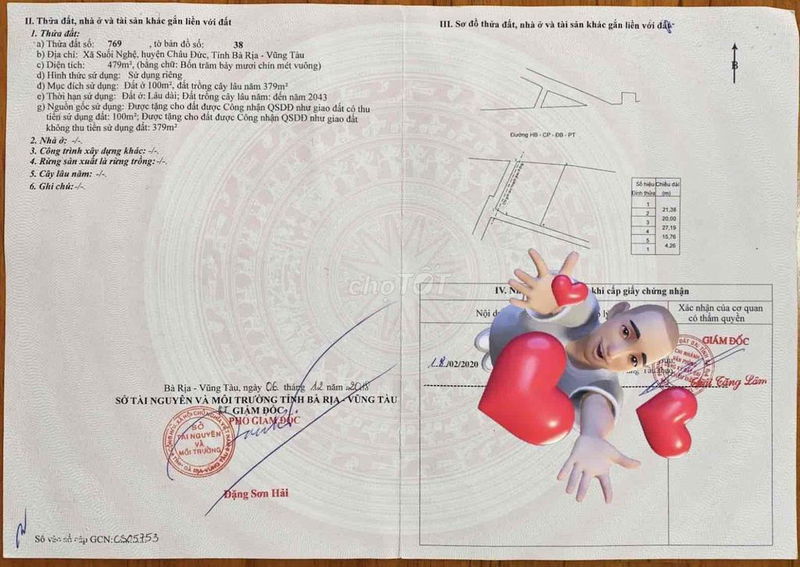 II. Thửa đất, nhà ở và tài sản khác gắn liền với đất
1. Thửa đất:
a) Thửa đất số: 769 , tờ bản đồ số: 38
b) Địa chỉ: Xã Suối Nghệ, huyện Châu Đức, Tỉnh Bà Rịa - Vũng Tàu
c) Diện tích: 479m², (bằng chữ: Bốn trăm bảy mươi chín mét vuông)
d) Hình thức sử dụng: Sử dụng riêng
đ) Mục đích sử dụng: Đất ở 100m², đất trồng cây lâu năm 379m²
e) Thời hạn sử dụng: Đất ở: Lâu dài; Đất trồng cây lâu năm: đến năm 2043
g) Nguồn gốc sử dụng: Được tặng cho đất được Công nhận QSDĐ như giao đất có thu
tiền sử dụng đất: 100m²; Được tặng cho đất được Công nhận QSDĐ như giao đất
không thu tiền sử dụng đất: 379m²
2. Nhà ở: -/-.
3. Công trình xây dựng khác: -/-.
4. Rừng sản xuất là rừng trồng:-/-.
5. Cây lâu năm: -/-.
6. Ghi chú:-/-.
choTOT
Bà Rịa - Vũng Tàu, ngày 06 tháng 12 năm 2018
SỞ TÀI NGUYÊN VÀ MÔI TRƯỜNG TỈNH BÀ RỊA - VŨNG TÀU
KT GIÁM ĐỐC
PHÓ GIÁM ĐỐC
SỞ
TÀI NGUYÊN
VÀ
MÔI TRƯỜNG
Đặng Sơn Hải
Số vào sổ cấp GCN: CS05753
III. Sơ đồ thửa đất, nhà ở và tài sản khác gắn liền với đất
B
Đường HB - CP - ĐB - PT
Số hiệu Chiều dài
Đỉnh thửa (m)
1
21,38
2
20,00
3
27,19
4
15,76
5
4,26
1
IV. khi cấp giấy chứng nhận
Nội
Xác nhận của cơ quan
có thẩm quyền
18/02/2020
GIÁM ĐỐC
CHI NHÁNH
VĂN PHÒNG
Tăng Lâm